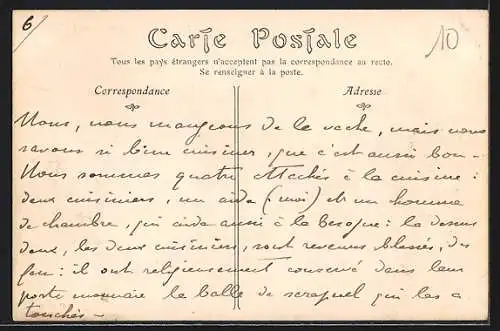 6
10
Carte Postale
Tous les pays étrangers n'acceptent pas la correspondance au recto.
Se renseigner à la poste.
Correspondance
Adresse
Nous, nous mangeons de la vache, mais nous
savons si bien cuisiner, que c'est aussi bon —
Nous sommes quatre à la cuisine :
deux cuisiniers, un aide (moi) et un homme
de chambre, qui aide aussi à la besogne : là dessus
deux, les deux cuisiniers, sont revenus blessés, du
feu : ils ont religieusement conservé dans leur
porte monnaie la balle de scrapnel qui les a
touchés —